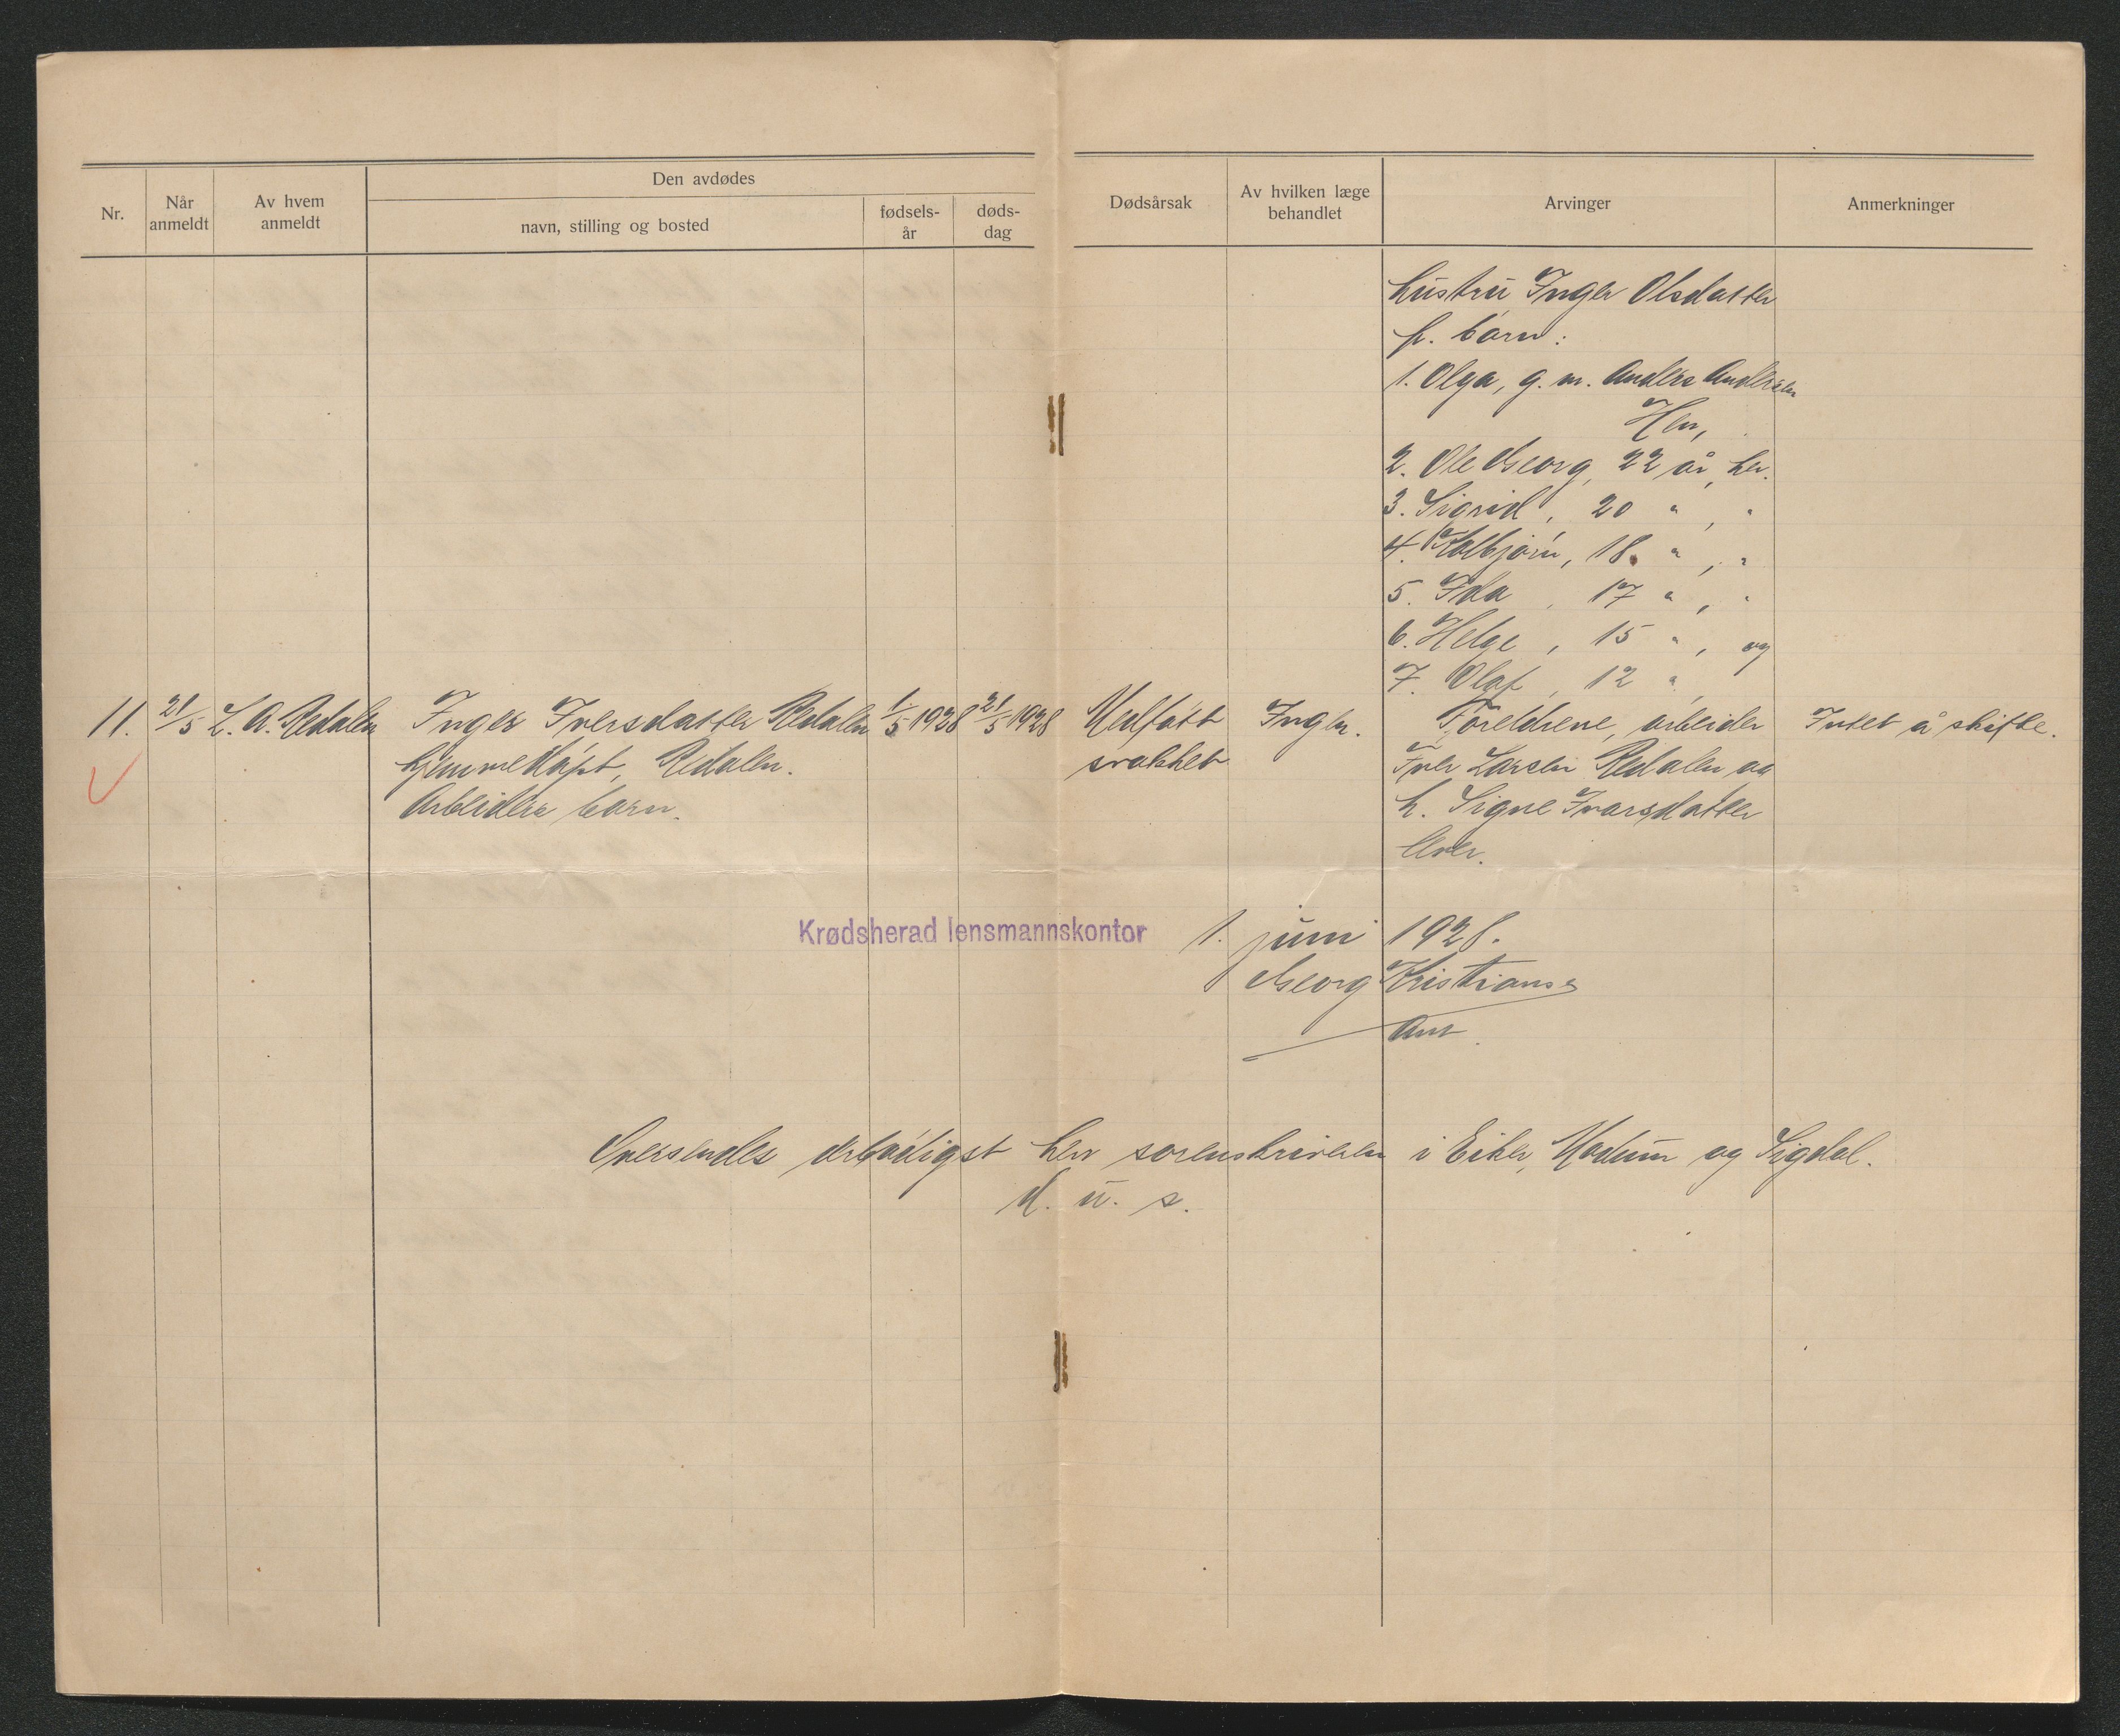 Nr.
Når anmeldt
Av hvem anmeldt
Den avdødes
navn, stilling og bosted
fødsels-år
døds-dag
Dødsårsak
Av hvilken læge behandlet
Arvinger
Anmerkninger
hustru Inger Olsdatter
barn:
1. Olga, g. m. Anders Andersen
Hen,
2. Ole Georg, 22 år, her.
3. Sigrid, 20 " , "
4. Kolbjørn, 18. " , "
5. Ida , 17 " , "
6. Helge , 15 " , og
7. Olaf , 12 "
11. 21/5 L. A. Redalen Inger Iversdatter Redalen 1/5 1928 21/5 1928 Medfødt Ingen. Foreldrene, arbeider Intet å skifte.
hjemmedøpt, Redalen. svakhet Iver Larsen Redalen og
Arbeiders barn. h. Signe Ivarsdatter
lever.
Krødsherad lensmannskontor 1. juni 1928.
Georg Kristians
Oversendes ærbødigst herr sorenskriveren i Eiker, Modum og Sigdal.
d. u. s.